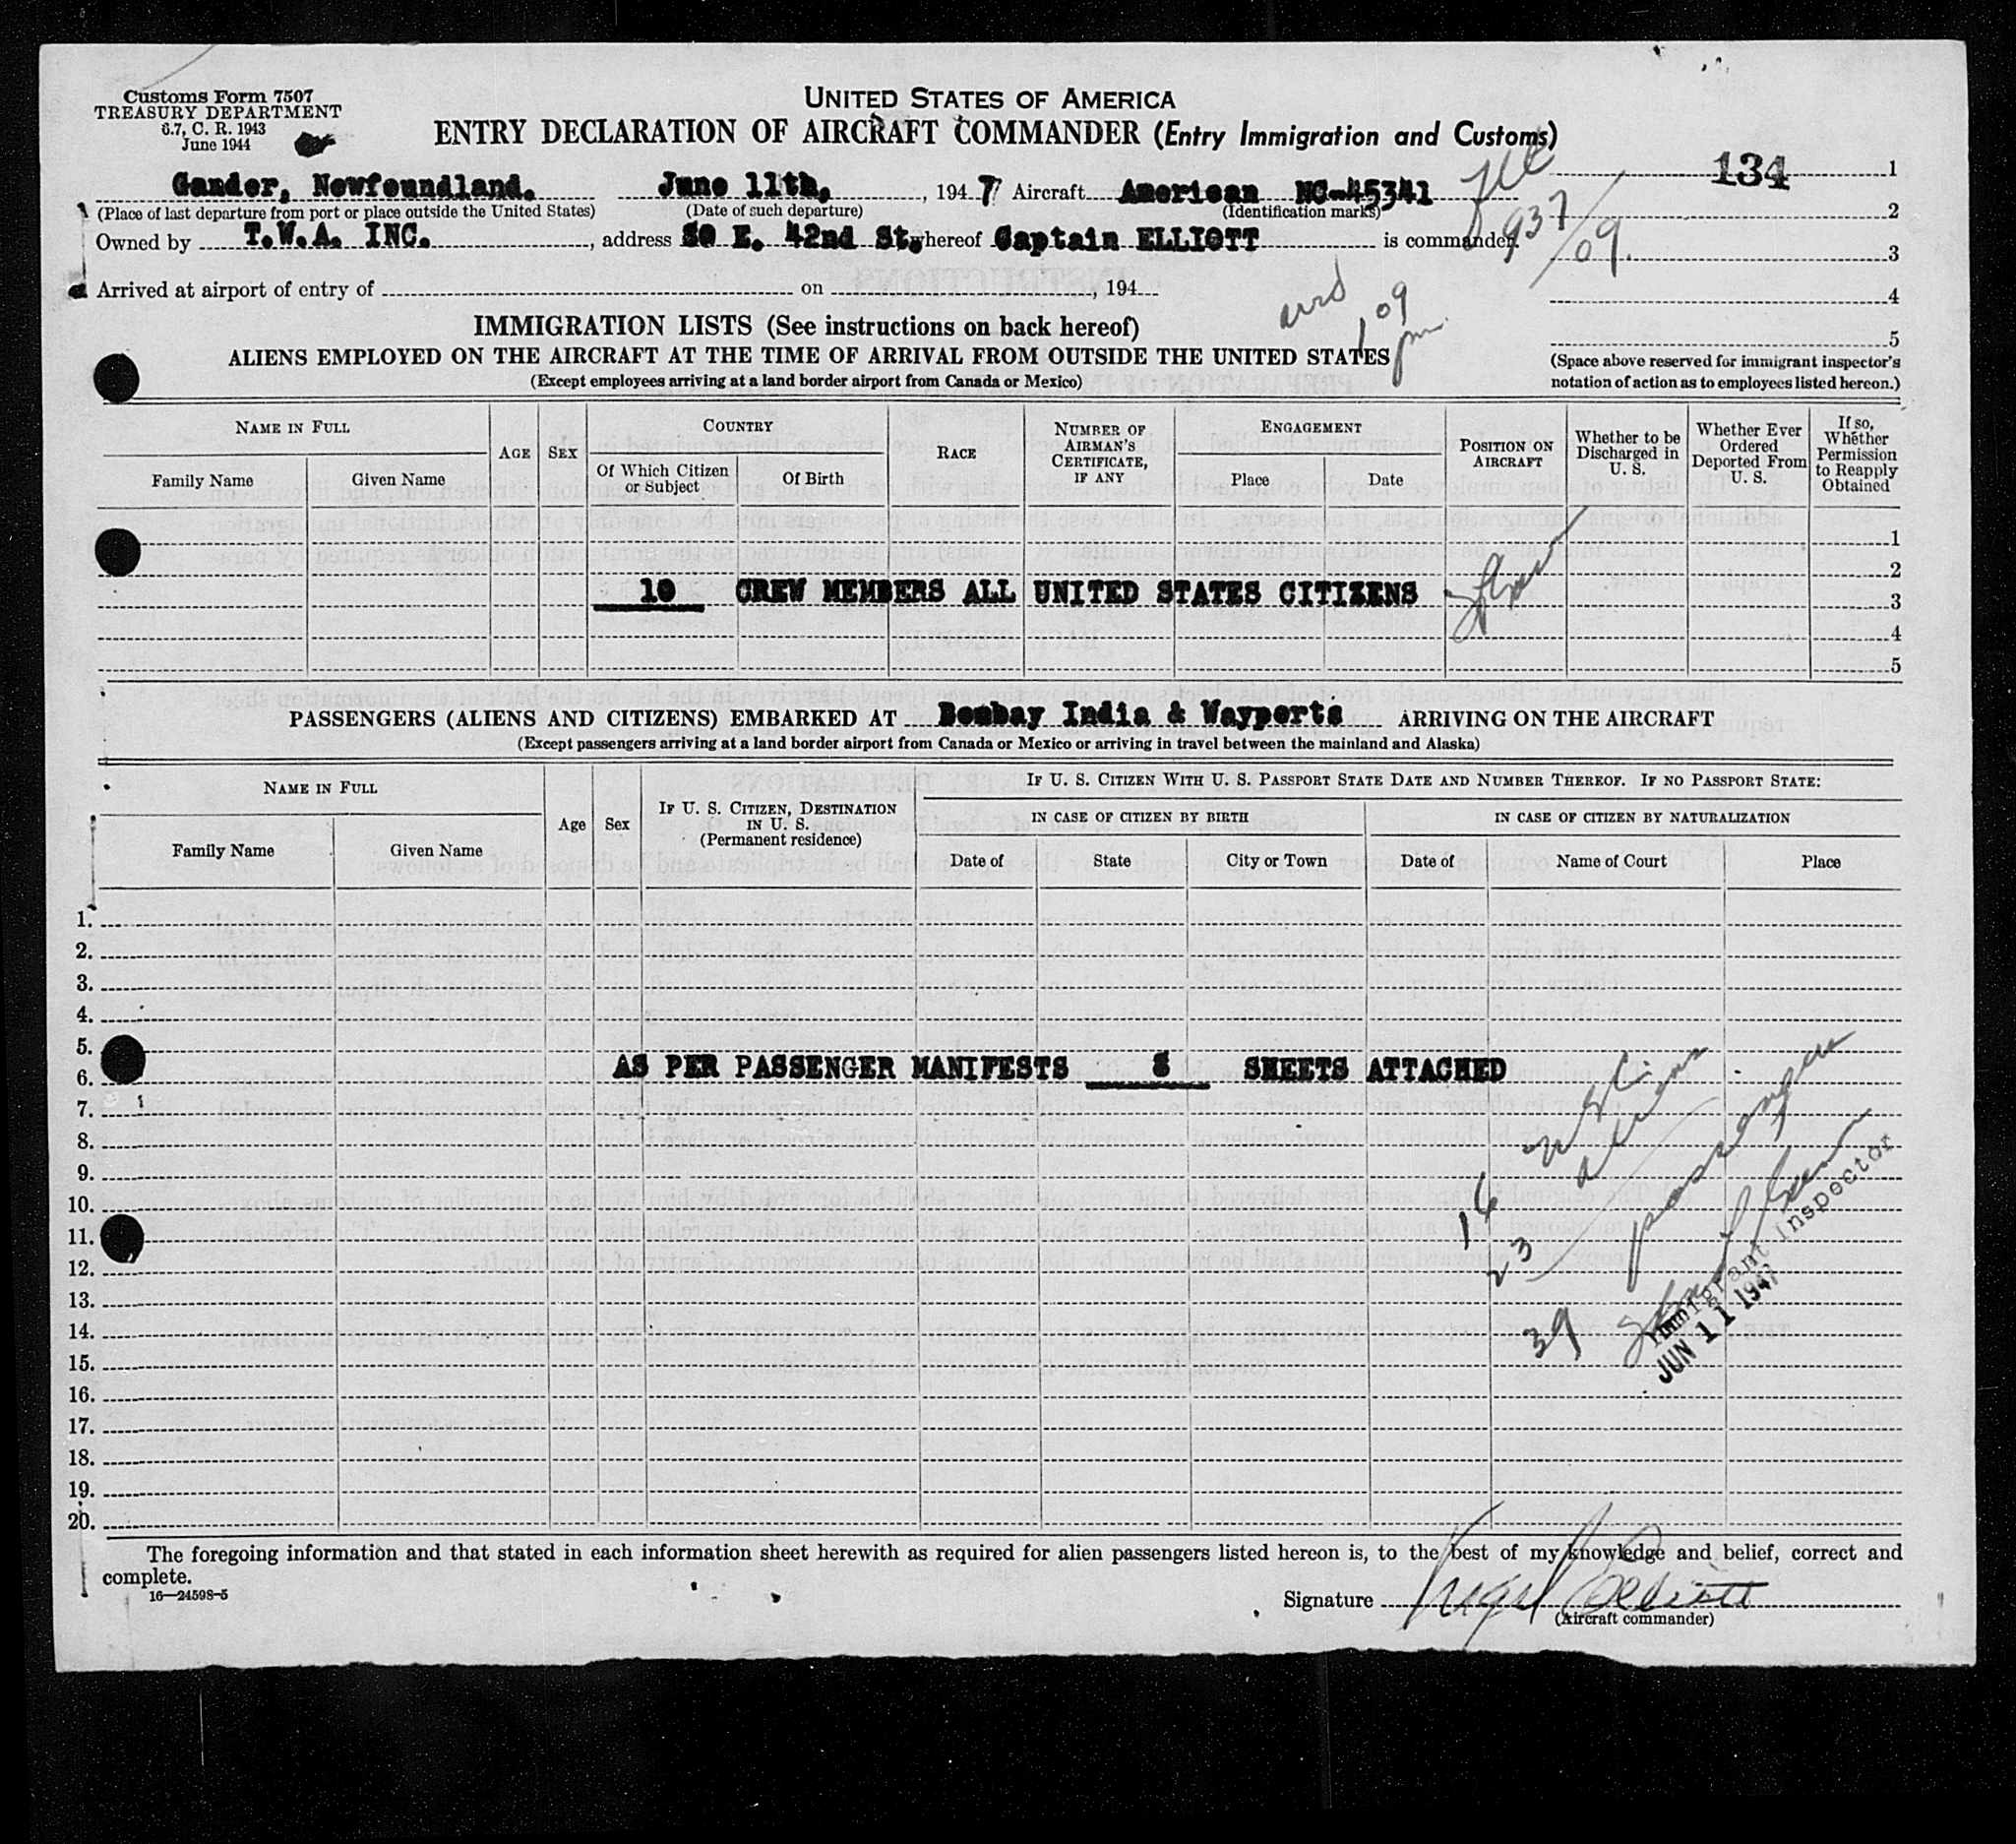 Customs Form 7507
TREASURY DEPARTMENT
6.7, C. R. 1943
June 1944
UNITED STATES OF AMERICA
ENTRY DECLARATION OF AIRCRAFT COMMANDER (Entry Immigration and Customs)
134 1
Gander, Newfoundland. June 11th, , 1947 Aircraft American NC-45341
(Place of last departure from port or place outside the United States) (Date of such departure) (Identification marks)
937/09. 2
Owned by T.W.A. INC. , address 60 E. 42nd St. whereof Captain ELLIOTT is commander.
3
Arrived at airport of entry of on , 194
4
arrd 1 09 pm
5
IMMIGRATION LISTS (See instructions on back hereof)
ALIENS EMPLOYED ON THE AIRCRAFT AT THE TIME OF ARRIVAL FROM OUTSIDE THE UNITED STATES
(Except employees arriving at a land border airport from Canada or Mexico)
(Space above reserved for immigrant inspector's
notation of action as to employees listed hereon.)
NAME IN FULL
Family Name Given Name
AGE SEX
COUNTRY
Of Which Citizen or Subject Of Birth
RACE
NUMBER OF AIRMAN'S CERTIFICATE, IF ANY
ENGAGEMENT
Place Date
POSITION ON AIRCRAFT
Whether to be Discharged in U. S.
Whether Ever Ordered Deported From U. S.
If so, Whether Permission to Reapply Obtained
1
2
10 CREW MEMBERS ALL UNITED STATES CITIZENS 3
4
5
PASSENGERS (ALIENS AND CITIZENS) EMBARKED AT Bombay India & Wayports ARRIVING ON THE AIRCRAFT
(Except passengers arriving at a land border airport from Canada or Mexico or arriving in travel between the mainland and Alaska)
NAME IN FULL
Family Name Given Name
Age Sex
IF U. S. CITIZEN, DESTINATION IN U. S.
(Permanent residence)
IF U. S. CITIZEN WITH U. S. PASSPORT STATE DATE AND NUMBER THEREOF. IF NO PASSPORT STATE:
IN CASE OF CITIZEN BY BIRTH IN CASE OF CITIZEN BY NATURALIZATION
Date of State City or Town Date of Name of Court Place
1.
2.
3.
4.
5.
AS PER PASSENGER MANIFESTS SHEETS ATTACHED
6.
7.
8.
9.
10.
11.
12.
13.
14.
15.
16.
17.
18.
19.
20.
16 USC
23 aliens
39 passengers
Immigrant Inspector
JUN 11 1947
The foregoing information and that stated in each information sheet herewith as required for alien passengers listed hereon is, to the best of my knowledge and belief, correct and
complete.
16—24598-5
Signature Elliott
(Aircraft commander)